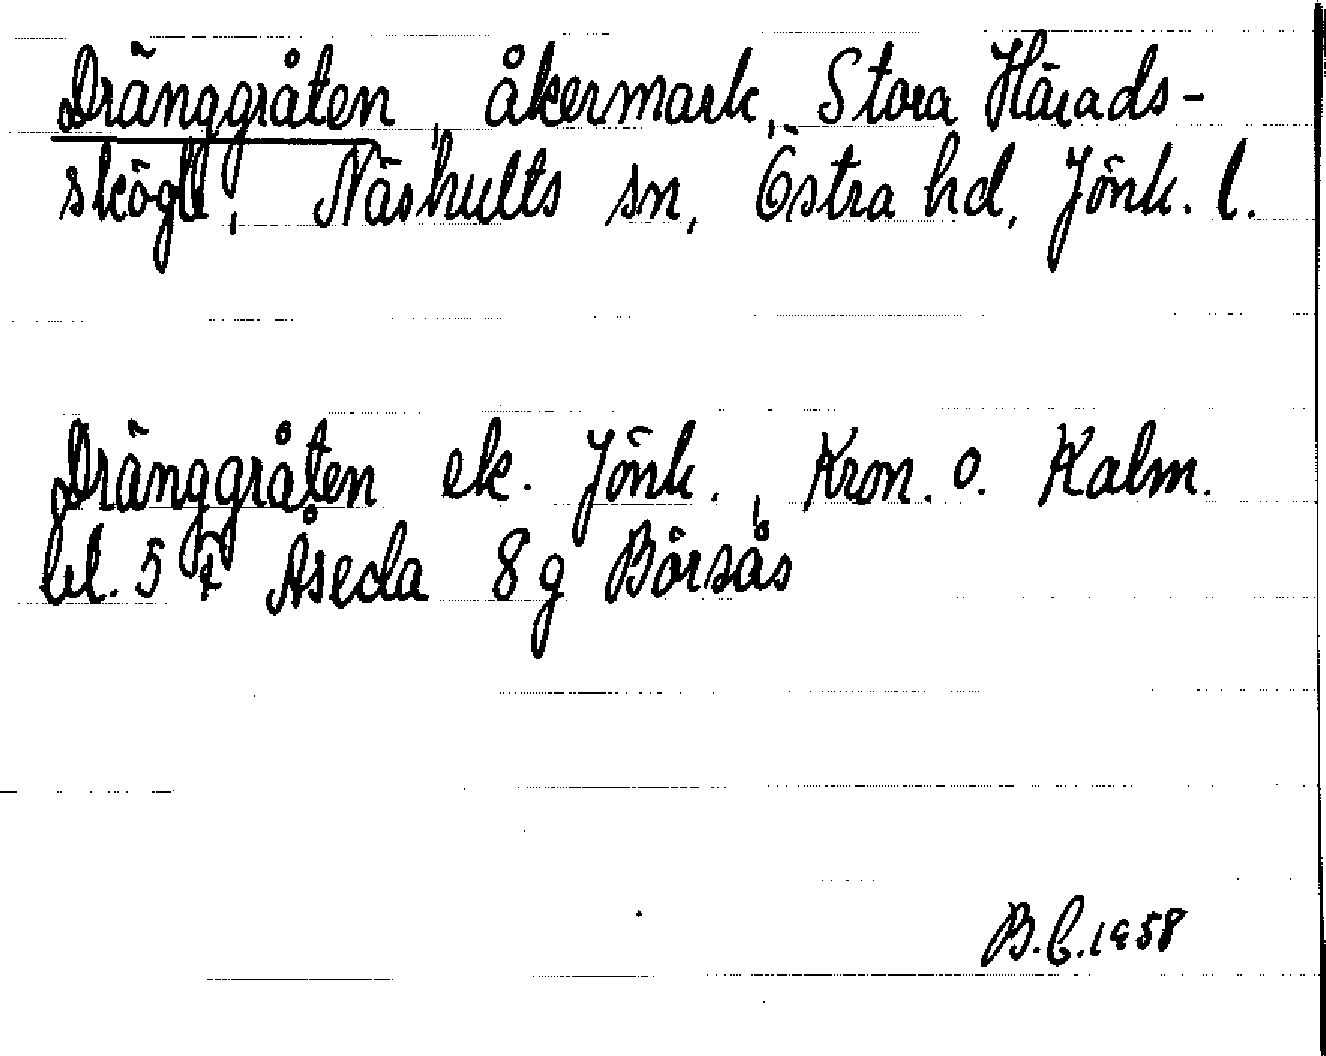 Dränggråten, åkermark, Stora Härads-
skögle, Näshults sn, Östra hd, Jönk. l.
Dränggråten ek. Jönk., Kron. o. Kalm.
bl. 57 Åseda 8g Börsås
B.C. 1958